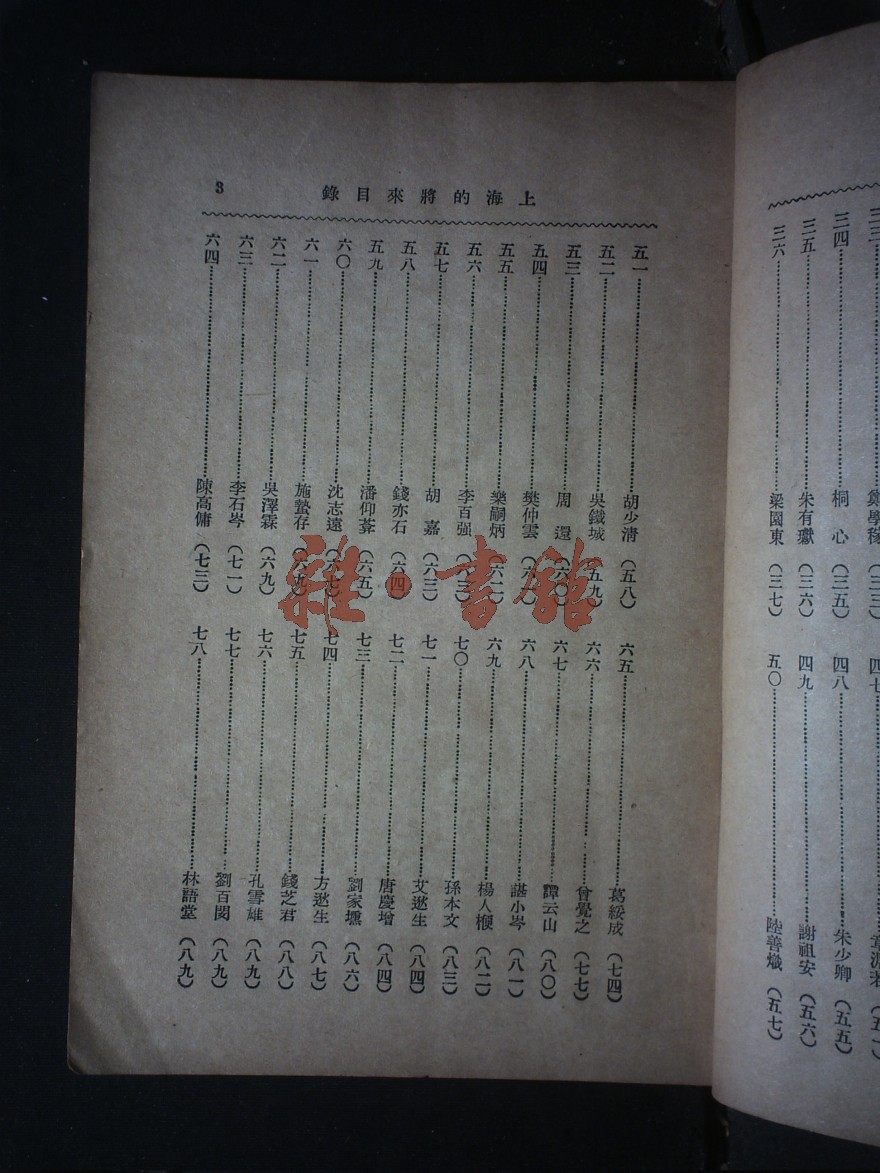 上海的將來目錄
3
三三 鄭學稼 (三三)
三四 桐心 (三五)
三五 朱有瓛 (三六)
三六 梁園東 (三七)
四七
四八 朱少卿 (五五)
四九 謝祖安 (五六)
五〇 陸善熾 (五七)
五一 胡少清 (五八)
五二 吳鐵城 (五九)
五三 周還 (六〇)
五四 樊仲雲
五五 樂嗣炳
五六 李百强
五七 胡嘉 (六三)
五八 錢亦石 (六四)
五九 潘仰蕘 (六五)
六〇 沈志遠 (六七)
六一 施蟄存 (六九)
六二 吳澤霖 (六九)
六三 李石岑 (七一)
六四 陳高傭 (七三)
六五 葛綏成 (七四)
六六 曾覺之 (七七)
六七 譚云山 (八〇)
六八 諶小岑 (八一)
六九 楊人楩 (八二)
七〇 孫本文 (八三)
七一 艾逖生 (八四)
七二 唐慶增 (八四)
七三 劉家壎 (八六)
七四 方逖生 (八七)
七五 錢芝君 (八八)
七六 孔雪雄 (八九)
七七 劉百閔 (八九)
七八 林語堂 (八九)
雜·書館